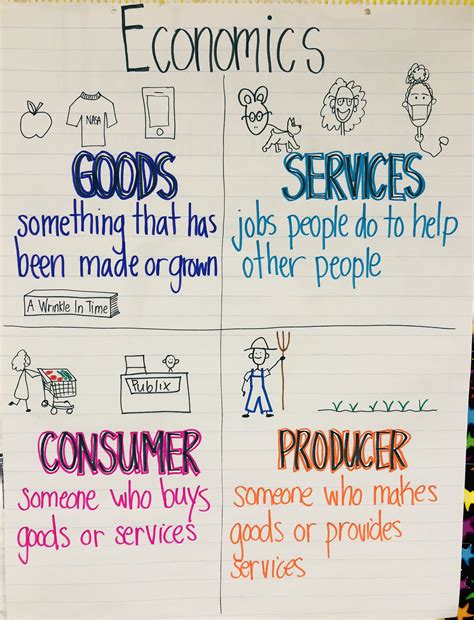 Economics
NASA
GOODS
something that has
been made or grown
A Wrinkle In Time
SERVICES
jobs people do to help
other people
Publix
CONSUMER
someone who buys
goods or services
PRODUCER
someone who makes
goods or provides
services